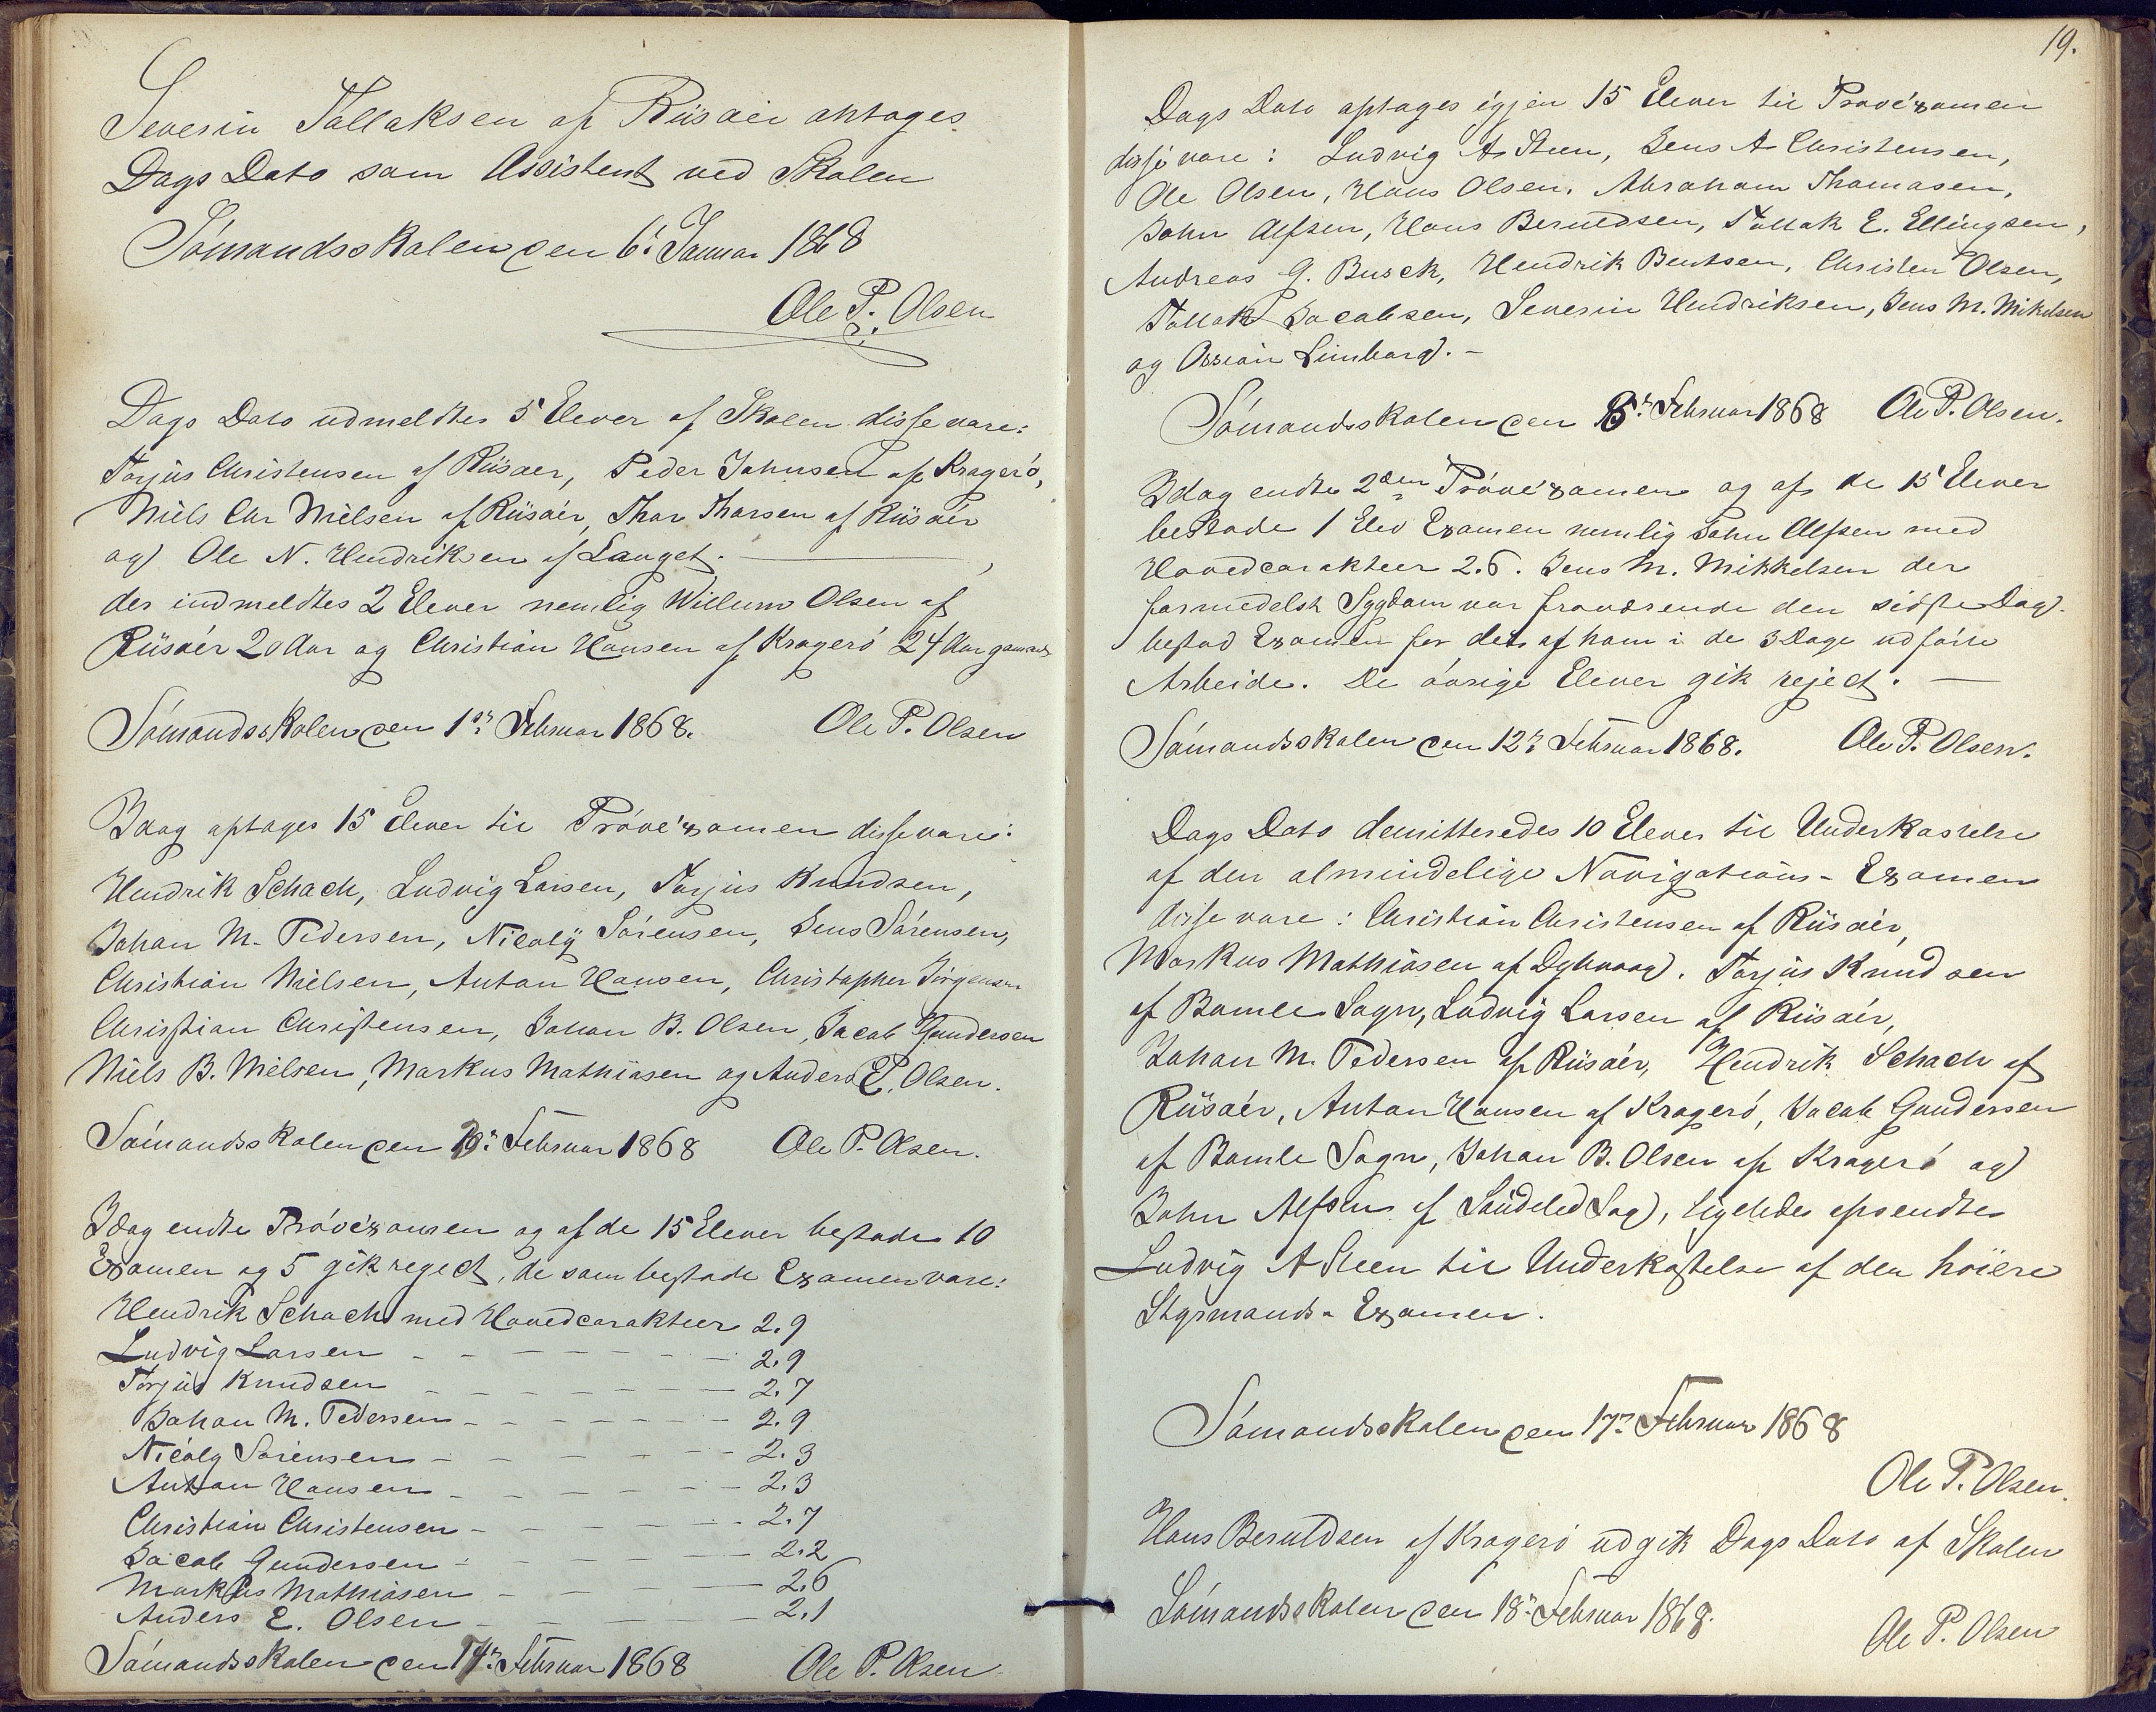 Severin Tallaksen af Riisøer antages
Dags Dato som Assistent ved Skolen
Sømandsskolen den 6: Januar 1868
Ole P. Olsen
Dags Dato udmeldtes 5 Elever af Skolen disse vare:
Torjus Christensen af Riisøer, Peder Johnsen af Kragerø,
Niels Chr Nielsen af Riisøer, Thor Thorsen af Riisøer
og Ole N. Hendriksen af Lauget.
der indmeldtes 2 Elever nemlig Willum Olsen af
Riisøer 20 Aar og Christian Hansen af Kragerø 24 Aar
Sømandsskolen den 1ste Februar 1868. Ole P. Olsen
Idag optages 15 Elever til Prøveexamen disse vare:
Hendrik Schach, Ludvig Larsen, Torjus Knudsen,
Johan M. Pedersen, Nicoly Sørensen, Jens Sørensen,
Christian Nielsen, Anton Hansen, Christopher Jørgensen
Christian Christensen, Johan B. Olsen, Jacob Gundersen
Niels B. Nielsen, Markus Mathiasen og Anders E. Olsen.
Sømandsskolen den Februar 1868 Ole P. Olsen.
Idag endte Prøveexamen og af de 15 Elever bestode 10
Examen og 5 gik reject, de som bestode Examen vare:
Hendrik Schach med Hovedcarakteer 2.9
Ludvig Larsen - - - - - - - 2.9
Torjus Knudsen - - - - - - - 2.7
Johan M. Pedersen - - - - - - 2.9
Nicoly Sørensen - - - - - - 2.3
Anton Hansen - - - - - - 2.3
Christian Christensen - - - - - - 2.7
Jacob Gundersen - - - - 2.2
Markus Mathiasen - - - 2.6
Anders E. Olsen - - - - 2.1
Sømandsskolen den Februar 1868 Ole P. Olsen
19.
Dags Dato optages igjen 15 Elever til Prøveexamen
disse vare: Ludvig A Steen, Jens A Christensen,
Ole Olsen, Hans Olsen, Abraham Thomasen,
John Alfsen, Hans Beruldsen, Tallak E. Ellingsen,
Andreas G. Busch, Hendrik Bentsen, Christen Olsen,
Tallak Jacobsen, Severin Hendriksen, Jens M. Mikelsen
og Ossian Limborg. -
Sømandsskolen den Februar 1868 Ole P. Olsen.
Idag endte 2den Prøveexamen og af de 15 Elever
bestode 1 Elev Examen nemlig John Alfsen med
Hovedcarakteer 2.6. Jens M. Mikkelsen der
formedelst Sygdom var fraværende den sidste Dag
bestod Examen for det af ham i de 3 Dage udførte
Arbeide. De øvrige Elever gik reject. —
Sømandsskolen den 12te Februar 1868. Ole P. Olsen.
Dags Dato demitteredes 10 Elever til Underkastelse
af den almindelige Navigations-Examen
disse vare: Christian Christensen af Riisøer,
Markus Mathiasen af Dybvaag. Torjus Knudsen
af Bamle Sogn, Ludvig Larsen af Riisøer,
Johan M. Pedersen af Riisøer, Hendrik Schach af
Riisøer, Anton Hansen af Kragerø, Jacob Gundersen
af Bamle Sogn, Johan B. Olsen af Kragerø og
John Alfsen af Søndeled Sog, ligeledes afsendtes
Ludvig A Steen til Underkastelse af den høiere
Styrmands-Examen.
Sømandsskolen den 17de Februar 1868
Ole P. Olsen.
Hans Beruldsen af Kragerø udgik Dags Dato af Skolen
Sømandsskolen den 18de Februar 1868.
Ole P. Olsen